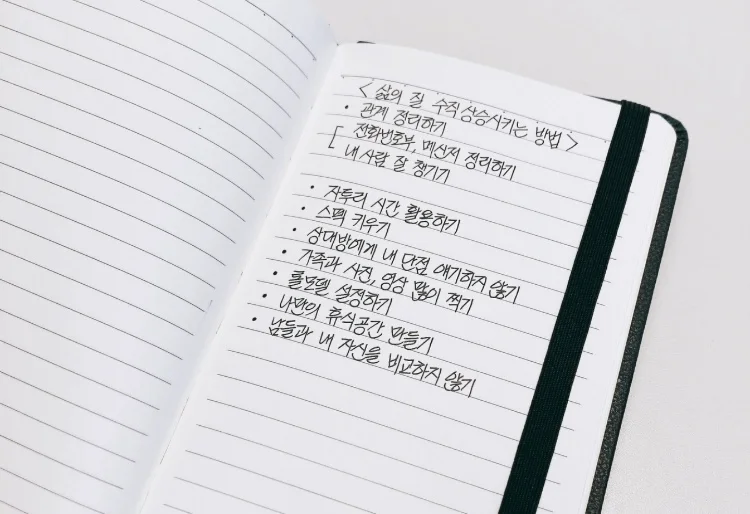 < 삶의 질 수직상승시키는 방법 >
• 관계 정리하기
[ 전화번호부, 메신저 정리하기
내 사람 잘 챙기기
• 자투리 시간 활용하기
• 스펙 키우기
• 상대방에게 내 단점 얘기하지 않기
• 가족과 사진, 영상 많이 찍기
• 롤모델 설정하기
• 나만의 휴식공간 만들기
• 남들과 내 자신을 비교하지 않기